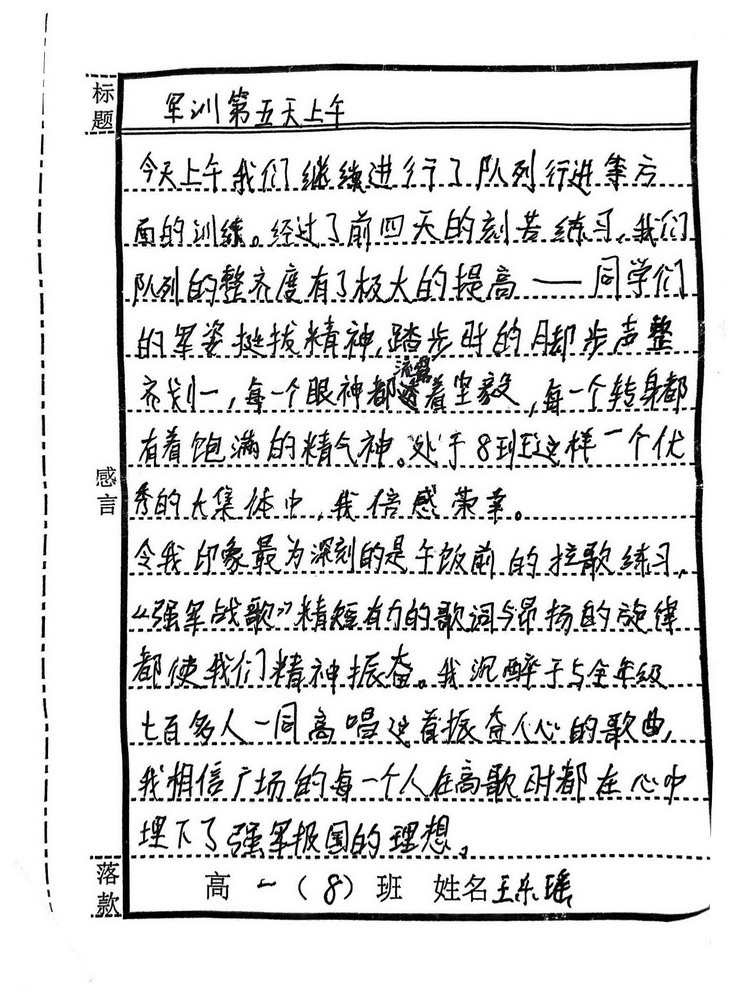 标题
军训第五天上午
今天上午我们继续进行了队列行进等方
面的训练。经过了前四天的刻苦练习,我们
队列的整齐度有了极大的提高——同学们
的军姿挺拔精神,踏步时的脚步声整
齐划一,每一个眼神都流露着坚毅,每一个转身都
有着饱满的精气神。处于8班这样一个优
秀的大集体中,我倍感荣幸。
感言
令我印象最为深刻的是午饭前的拉歌练习,
《强军战歌》精短有力的歌词与昂扬的旋律
都使我们精神振奋。我沉醉于与全年级
七百多人一同高唱这首振奋人心的歌曲,
我相信广场的每一个人在高歌时都在心中
埋下了强军报国的理想。
落款
高一(8)班 姓名王乐瑶